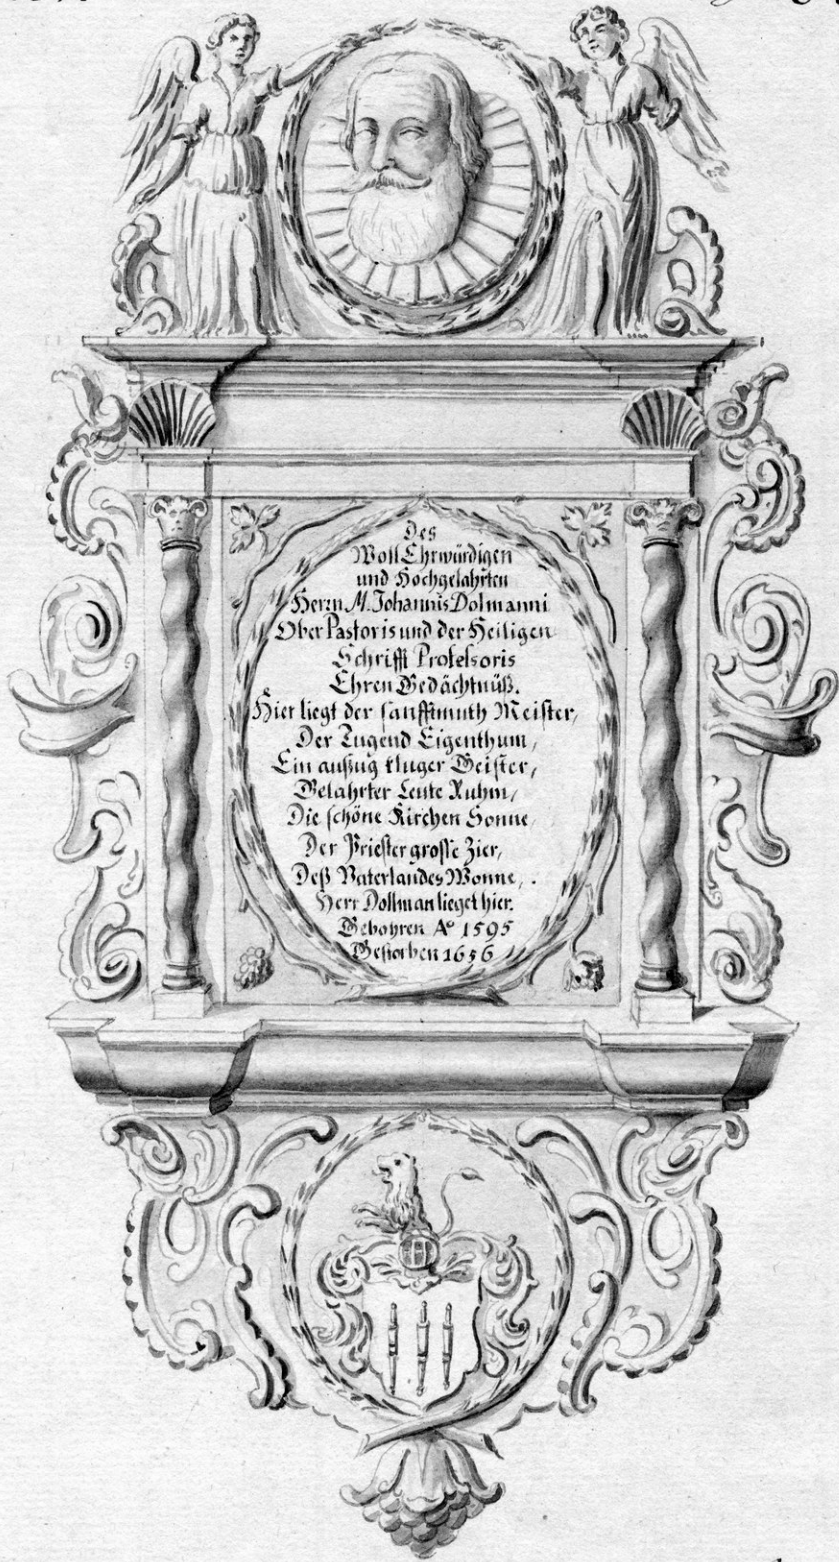 Des
WollEhrwürdigen
und Hochgelahrten
Herrn M. Johannis Dolmanni
Ober Pastoris und der Heiligen
Schrifft Profeſsoris
Ehren Gedächtnüß.
Hier liegt der ſanfftmuth Meiſter,
Der Tugend Eigenthum,
Ein außzug kluger Geiſter,
Gelahrter Leute Ruhm,
Die ſchöne Kirchen Sonne,
Der Prieſter groſſe Zier,
Deß Vaterlandes Wonne,
Herr Dollman lieget hier.
Gebohren Aº 1595
Geſtorben 1656